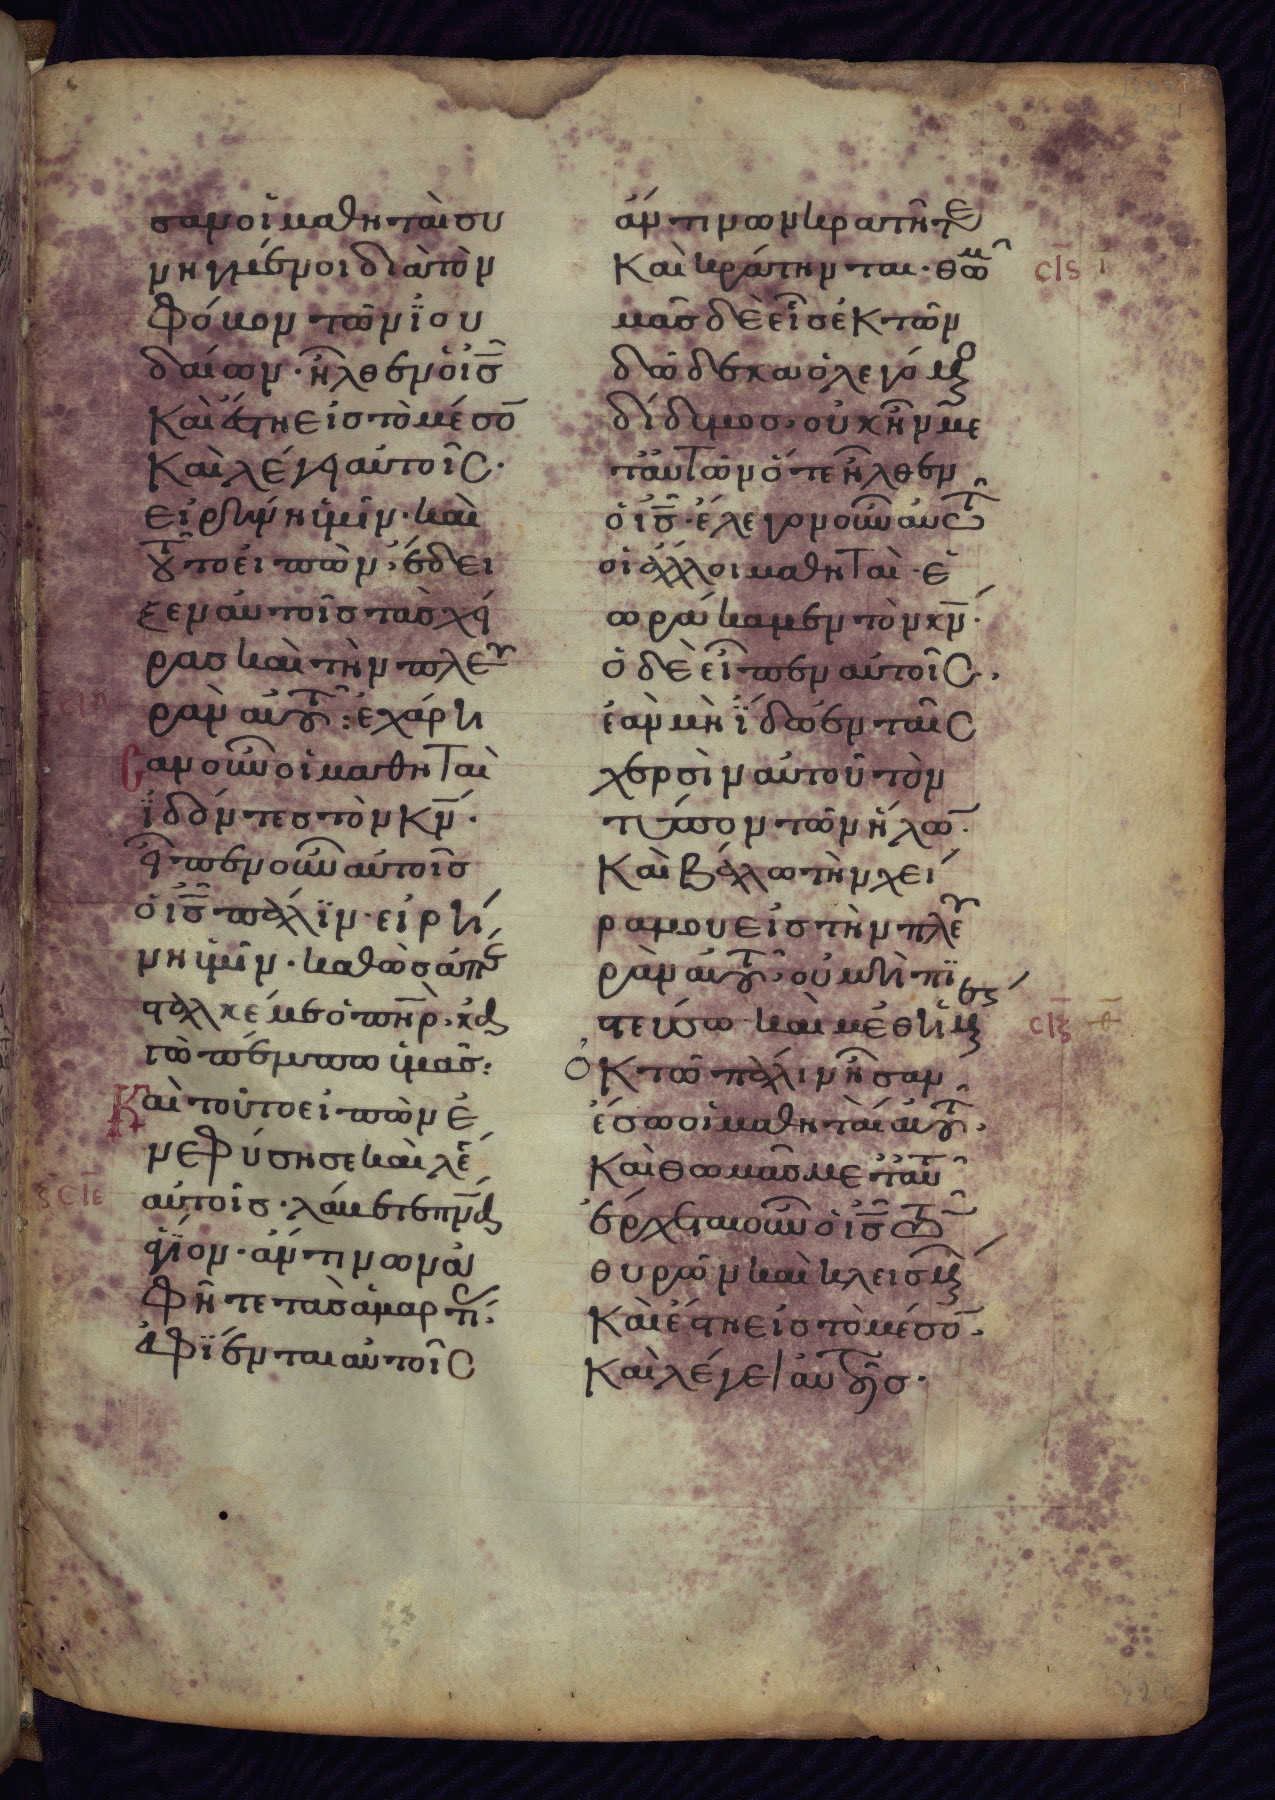 σαν οἱ μαθηταὶ συ
νηγμένοι διὰ τὸν
φόβον τῶν ἰου
δαίων· ἦλθεν ὁ ις
Καὶ ἔστη εἰς τὸ μέσο
Καὶ λέγει αὐτοῖς·
εἰρήνη ὑμῖν· καὶ
τοῦτο εἰπὼν· ἔδει
ξεν αὐτοῖς τὰς χεί
ρας καὶ τὴν πλευ
ρὰν αὐτοῦ: ἐχάρη
σαν οὖν οἱ μαθηταὶ
ἰδόντες τὸν κν·
εἶπεν οὖν αὐτοῖς
ὁ ις πάλιν· εἰρή
νη ὑμῖν· καθὼς ἀπέ
σταλκέ με ὁ πηρ· κα
γὼ πέμπω ὑμᾶς:
Καὶ τοῦτο εἰπὼν ἐ
νεφύσησε καὶ λέ
αὐτοῖς· λάβετε πνα
ἅγιον· ἄν τινων ἀ
φῆτε τὰς ἁμαρτί·
ἀφίενται αὐτοῖς
ἄν τινων κρατῆτε
Καὶ κράτηνται· θωμ
μᾶς δὲ εἷς ἐκ τῶν
δώδεκα ὁ λεγόμ
δίδυμος· οὐκ ἦν με
τ αὐτῶν ὅτε ἦλθεν
ὁ ις· ἔλεγον οὖν αὐτῶ
οἱ ἄλλοι μαθηταὶ· ἑ
ωράκαμεν τὸν κν·
ὁ δὲ εἶπεν αὐτοῖς·
ἐὰν μὴ ἴδω ἐν ταῖς
χερσὶν αὐτοῦ τὸν
τύπον τῶν ἥλω·
Καὶ βάλω τὴν χεῖ
ρα μου εἰς τὴν πλευ
ρὰν αὐτοῦ· οὐ μὴ πι
στεύσω καὶ μεθ ἡμ
ὀκτὼ πάλιν ἦσαν
ἔσω οἱ μαθηταὶ αὐτοῦ·
Καὶ θωμᾶς μετ αὐτ
ἔρχεται οὖν ὁ ις τῶν
θυρῶν κεκλεισμ
Καὶ ἔστη εἰς τὸ μέσο·
Καὶ λέγει αὐτοῖς·